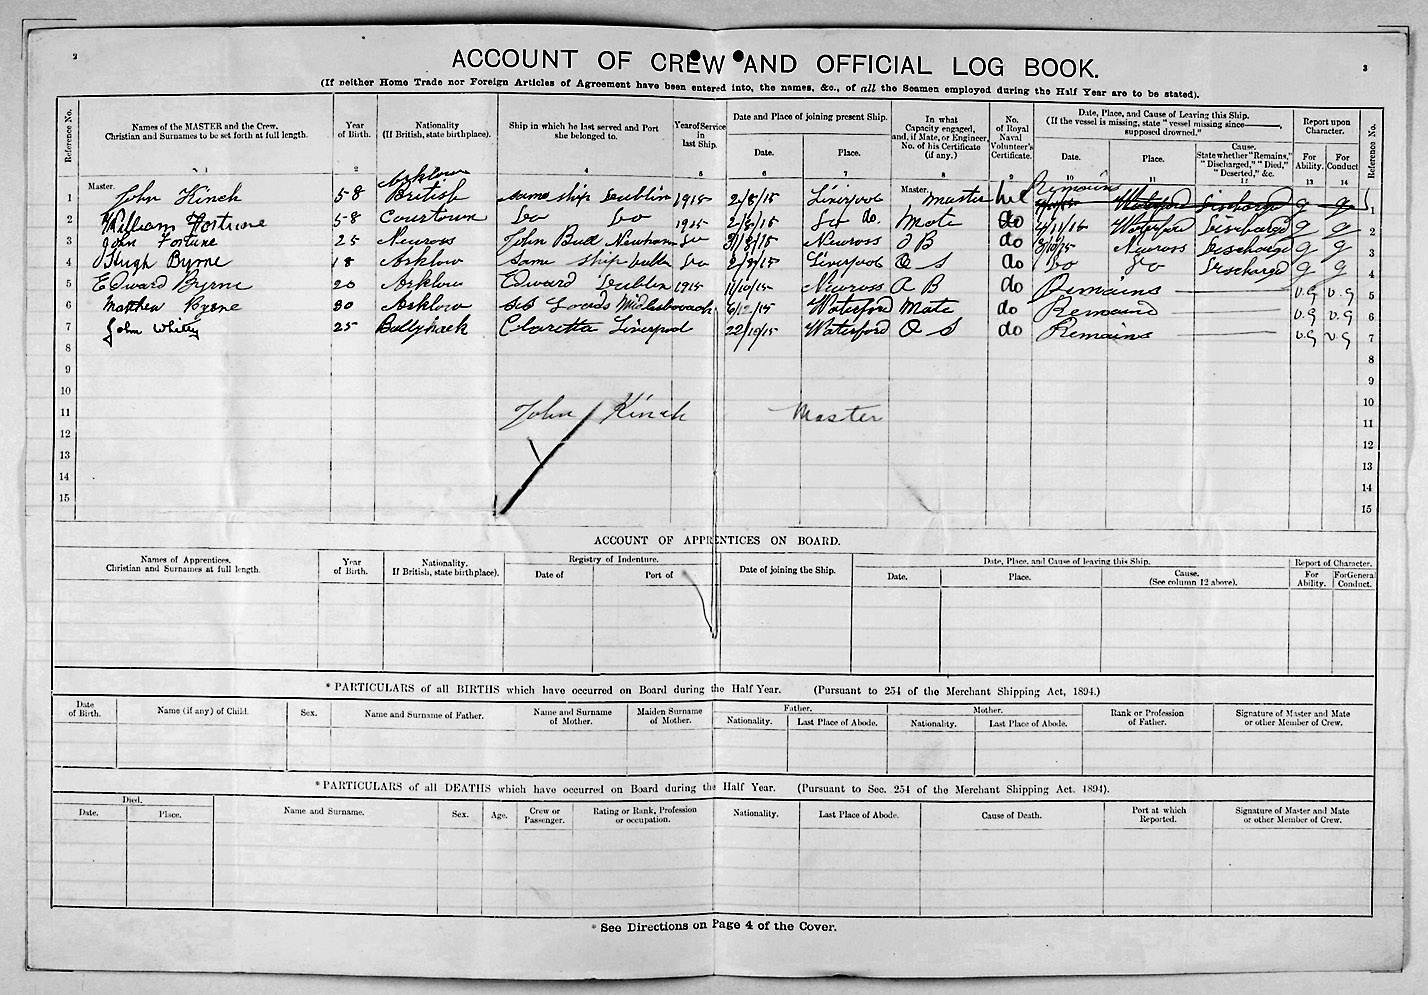 2
3
ACCOUNT OF CREW AND OFFICIAL LOG BOOK.
(If neither Home Trade nor Foreign Articles of Agreement have been entered into, the names, &c., of all the Seamen employed during the Half Year are to be stated).
Reference No. Names of the MASTER and the Crew. Christian and Surnames to be set forth at full length. Year of Birth. Nationality (If British, state birthplace). Ship in which he last served and Port she belonged to. Year of Service in last Ship. Date and Place of joining present Ship. Date. Place. In what Capacity engaged, and, if Mate, or Engineer, No. of his Certificate (if any). No. of Royal Naval Volunteer's Certificate. Date, Place, and Cause of Leaving this Ship. (If the vessel is missing, state "vessel missing since ——, supposed drowned." Date. Place. Cause. State whether "Remains," "Discharged," "Died," "Deserted," &c. Report upon Character. For Ability. For Conduct Reference No.
1 2 3 4 5 6 7 8 9 10 11 12 13 14
Arklow Remains
1 Master. John Kinch 58 British same ship Dublin 1915 2/8/15 Liverpool Master. Master nil Waterford Discharged g g 1
2 William Fortune 58 Courtown Do Do 1915 2/8/15 Do do. Mate do 4/11/15 Waterford Discharged g g 2
3 John Fortune 25 Newross John Bud Newham Do 31/8/15 Newross A B do 3/10/15 Newross Discharge g g 3
4 Hugh Byrne 18 Arklow Same ship Do 2/8/15 Liverpool O S do Do Do Discharged g g 4
5 Edward Byrne 20 Arklow Edward Dublin 1915 11/10/15 Newross A B do Remains v.g v.g 5
6 Matthew Byrne 30 Arklow SS Middlesborough 6/12/15 Waterford Mate do Remains v.g v.g 6
7 John Whitty 25 Ballyhack Claretta Liverpool 22/10/15 Waterford O S do Remains v.g v.g 7
8 8
9 9
10 10
11 John Kinch Master 11
12 12
13 13
14 14
15 15
ACCOUNT OF APPRENTICES ON BOARD.
Names of Apprentices. Christian and Surnames at full length. Year of Birth. Nationality. If British, state birthplace). Registry of Indenture. Date of Port of Date of joining the Ship. Date, Place, and Cause of leaving this Ship. Date. Place. Cause. (See column 12 above). Report of Character. For Ability. For General Conduct.
* PARTICULARS of all BIRTHS which have occurred on Board during the Half Year. (Pursuant to 254 of the Merchant Shipping Act, 1894.)
Date of Birth. Name (if any) of Child. Sex. Name and Surname of Father. Name and Surname of Mother. Maiden Surname of Mother. Father. Nationality. Last Place of Abode. Mother. Nationality. Last Place of Abode. Rank or Profession of Father. Signature of Master and Mate or other Member of Crew.
* PARTICULARS of all DEATHS which have occurred on Board during the Half Year. (Pursuant to Sec. 254 of the Merchant Shipping Act. 1894).
Died. Date. Place. Name and Surname. Sex. Age. Crew or Passenger. Rating or Rank, Profession or occupation. Nationality. Last Place of Abode. Cause of Death. Port at which Reported. Signature of Master and Mate or other Member of Crew.
* See Directions on Page 4 of the Cover.